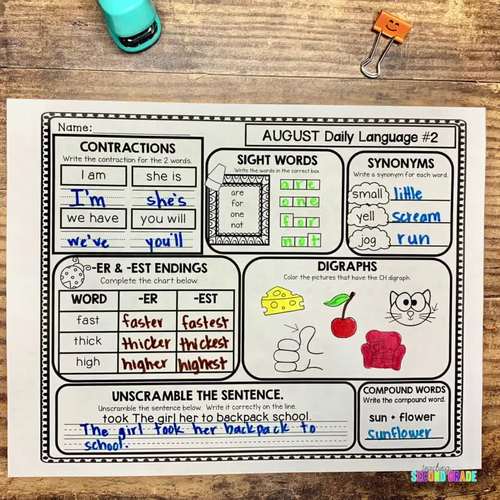 Name:
AUGUST Daily Language #2
CONTRACTIONS
Write the contraction for the 2 words.
I am
she is
I'm
she's
we have
you will
we've
you'll
SIGHT WORDS
Write the words in the correct box.
are
for
one
not
are
one
for
not
SYNONYMS
Write a synonym for each word.
small little
yell scream
jog run
-ER & -EST ENDINGS
Complete the chart below.
WORD -ER -EST
fast faster fastest
thick thicker thickest
high higher highest
DIGRAPHS
Color the pictures that have the CH digraph.
UNSCRAMBLE THE SENTENCE.
Unscramble the sentence below. Write it correctly on the line.
took The girl her to backpack school.
The girl took her backpack to
school.
COMPOUND WORDS
Write the compound word.
sun + flower
sunflower
SECOND GRADE